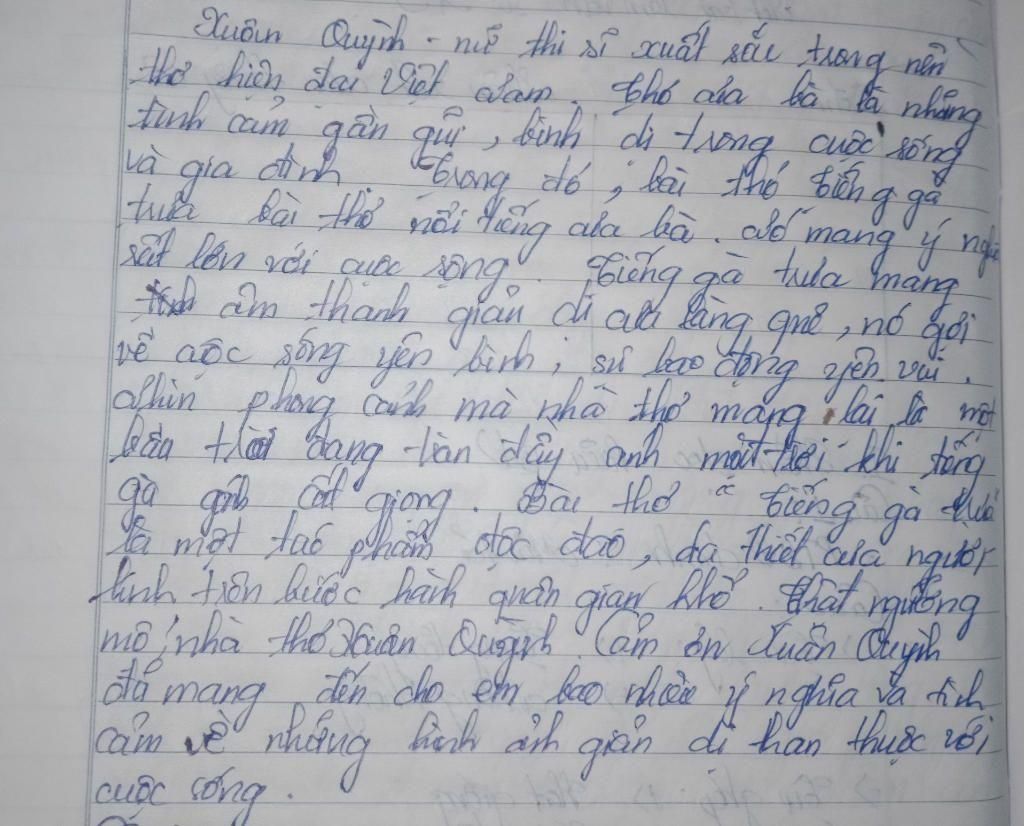 Xuân Quỳnh - nữ thi sĩ xuất sắc trong nền
thơ hiện đại Việt Nam. Thơ của bà là những
tình cảm gần gũi, bình dị trong cuộc sống
và gia đình Trong đó, bài thơ Tiếng gà
trưa bài thơ nổi tiếng của bà. Nó mang ý nghĩa
rất lớn với cuộc sống. Tiếng gà trưa mang
âm thanh giản dị của làng quê, nó gợi
về cuộc sống yên bình, sự bao động yên vui.
Nhìn phong cảnh mà nhà thơ mang lại là một
bầu trời đang tràn đầy anh mặt trời khi tiếng
gà gáy cất giọng. Bài thơ Tiếng gà trưa
là một tác phẩm độc đáo, da thiết của người
lính trên bước hành quân gian khổ. Thật ngưỡng
mộ nhà thơ Xuân Quỳnh. Cảm ơn Xuân Quỳnh
đã mang đến cho em bao nhiêu ý nghĩa và tình
cảm về những hình ảnh giản dị thân thuộc với
cuộc sống.